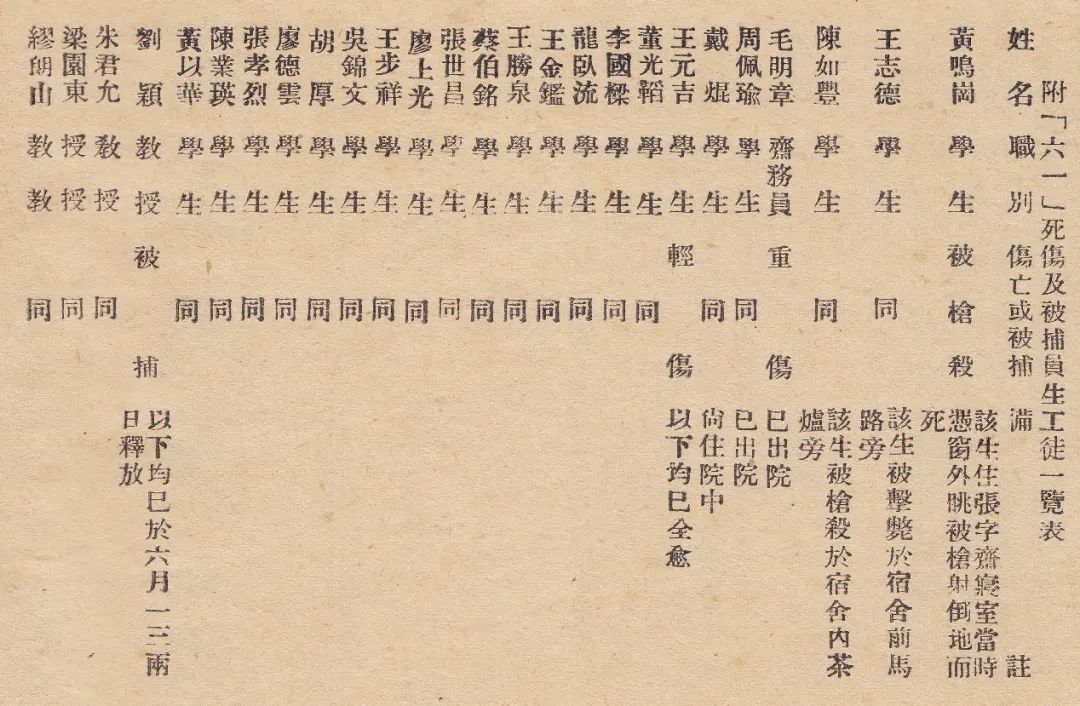 附「六一」死傷及被捕員生工徒一覽表
姓名 職別 傷亡或被捕 備註
黃鳴崗 學生 被槍殺 該生住張字齋寢室當時
憑窗外眺被槍射倒地而
死
王志德 學生 同 該生被擊斃於宿舍前馬
路旁
陳如豐 學生 同 該生被槍殺於宿舍內茶
爐旁
毛明章 齋務員 重傷 已出院
周佩瑜 學生 同 已出院
戴焜 學生 同 尚住院中
王元吉 學生 輕傷 以下均已全愈
董光韜 學生 同
李國樑 學生 同
龍臥流 學生 同
王金鑑 學生 同
王勝泉 學生 同
蔡伯銘 學生 同
張世昌 學生 同
廖上光 學生 同
王步祥 學生 同
吳錦文 學生 同
胡厚 學生 同
廖德雲 學生 同
張孝烈 學生 同
陳業瑛 學生 同
黃以華 學生 同
劉穎 教授 被捕 以下均已於六月一三兩
日釋放
朱君允 教授 同
梁園東 教授 同
繆朗山 教教 同